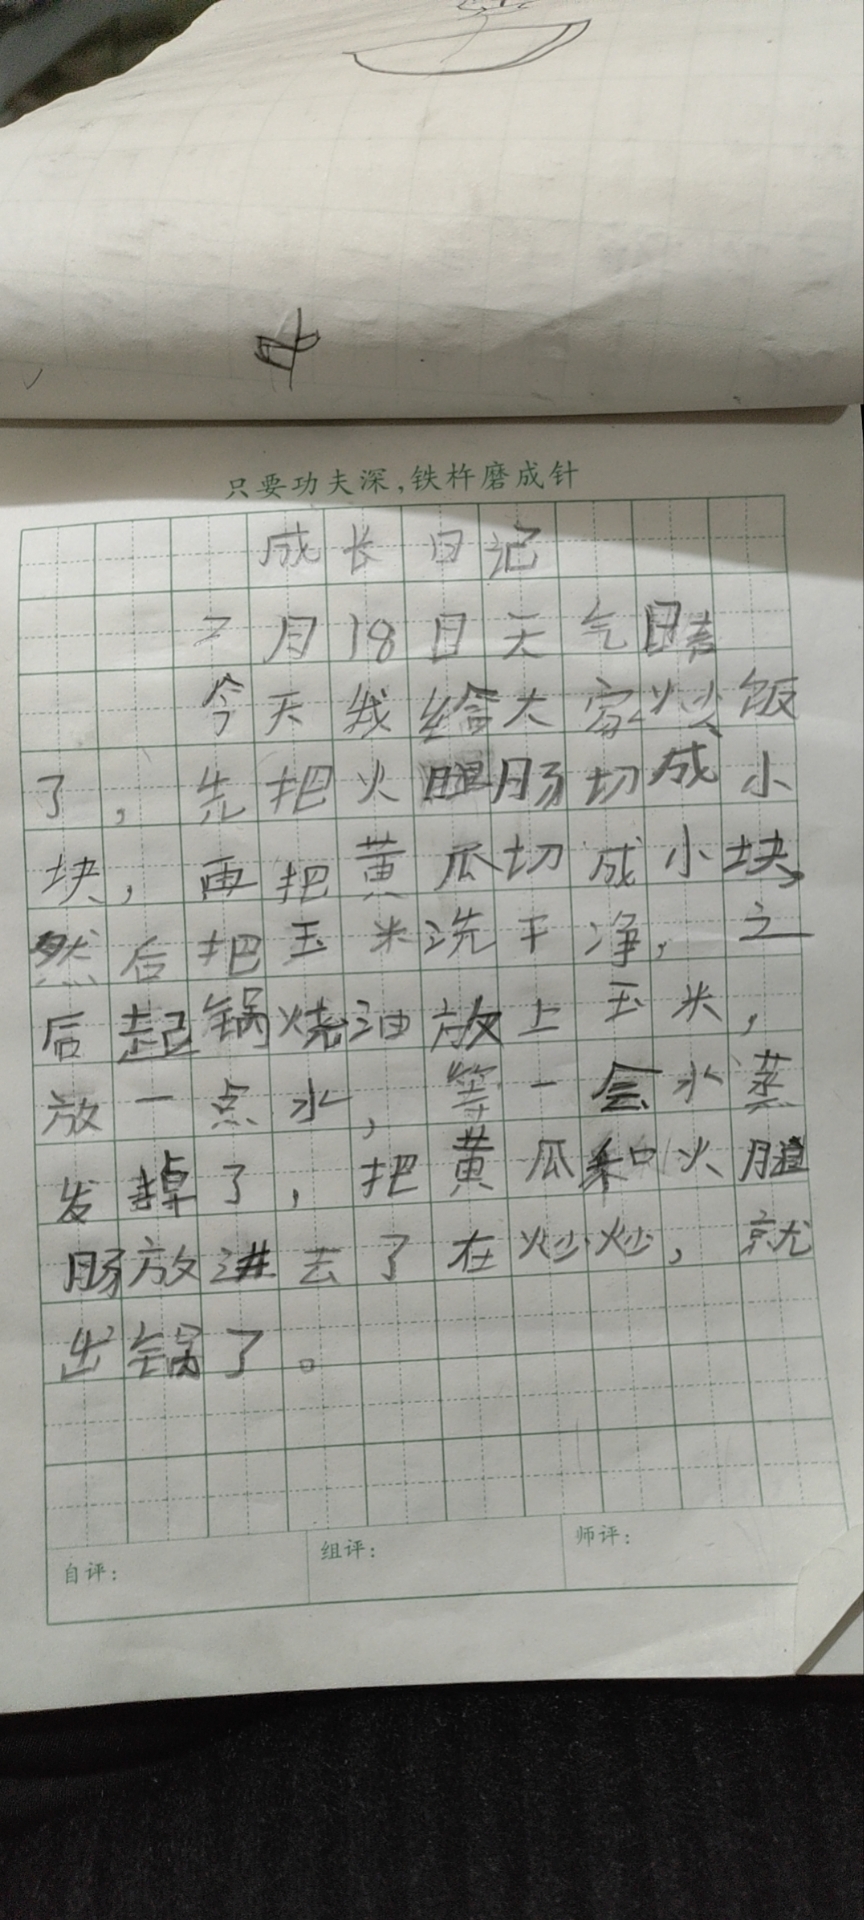 只要功夫深,铁杵磨成针
成长日记
7月18日天气晴
今天我给大家炒饭
了，先把火腿肠切成小
块，再把黄瓜切成小块，
然后把玉米洗干净，之
后起锅烧油放上玉米，
放一点水，等一会水蒸
发掉了，把黄瓜和火腿
肠放进去了在炒炒，就
出锅了。
自评：
组评：
师评：